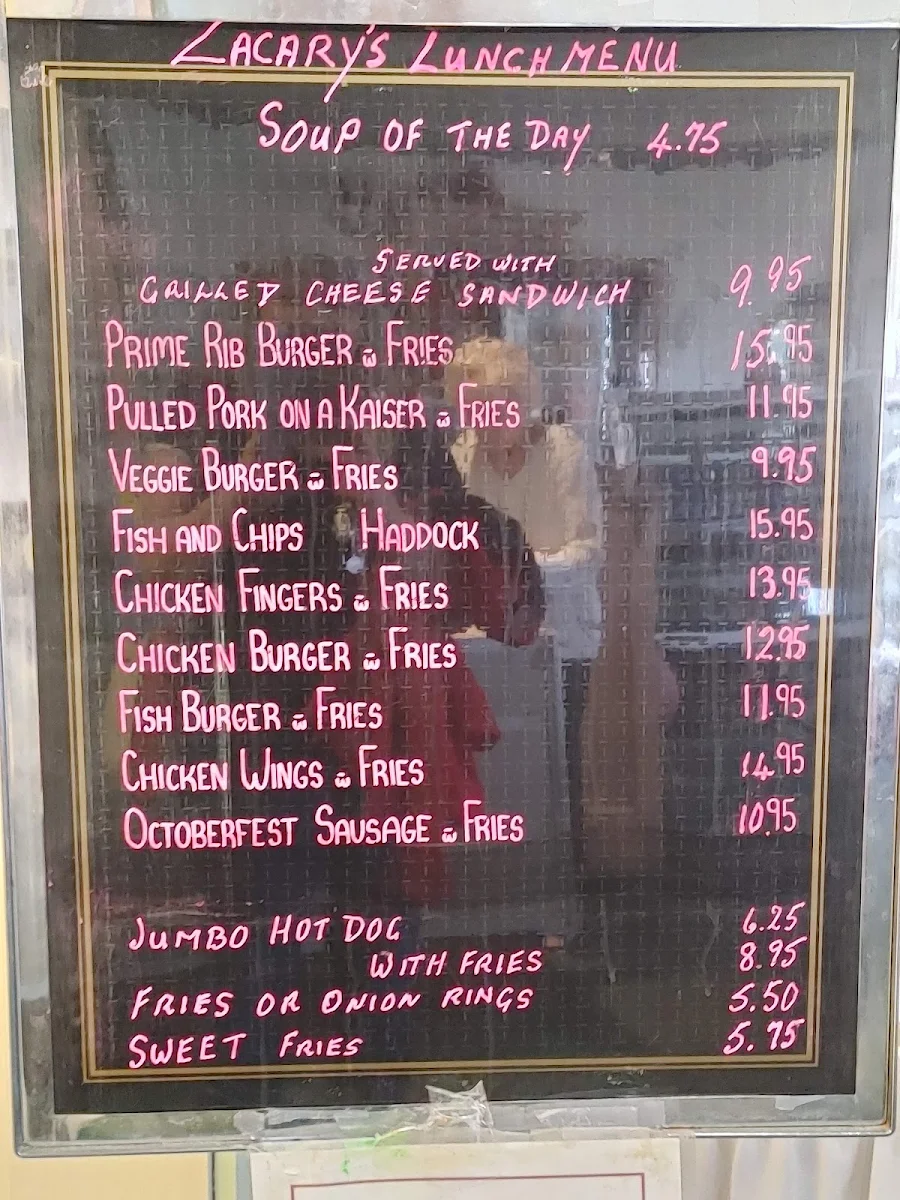 ZACARY'S LUNCH MENU
SOUP OF THE DAY 4.75
SERVED WITH
GRILLED CHEESE SANDWICH 9.95
PRIME RIB BURGER w FRIES 15.95
PULLED PORK ON A KAISER w FRIES 11.95
VEGGIE BURGER w FRIES 9.95
FISH AND CHIPS HADDOCK 15.95
CHICKEN FINGERS w FRIES 13.95
CHICKEN BURGER w FRIES 12.95
FISH BURGER w FRIES 11.95
CHICKEN WINGS w FRIES 14.95
OCTOBERFEST SAUSAGE w FRIES 10.95
JUMBO HOT DOG 6.25
WITH FRIES 8.95
FRIES OR ONION RINGS 5.50
SWEET FRIES 5.75